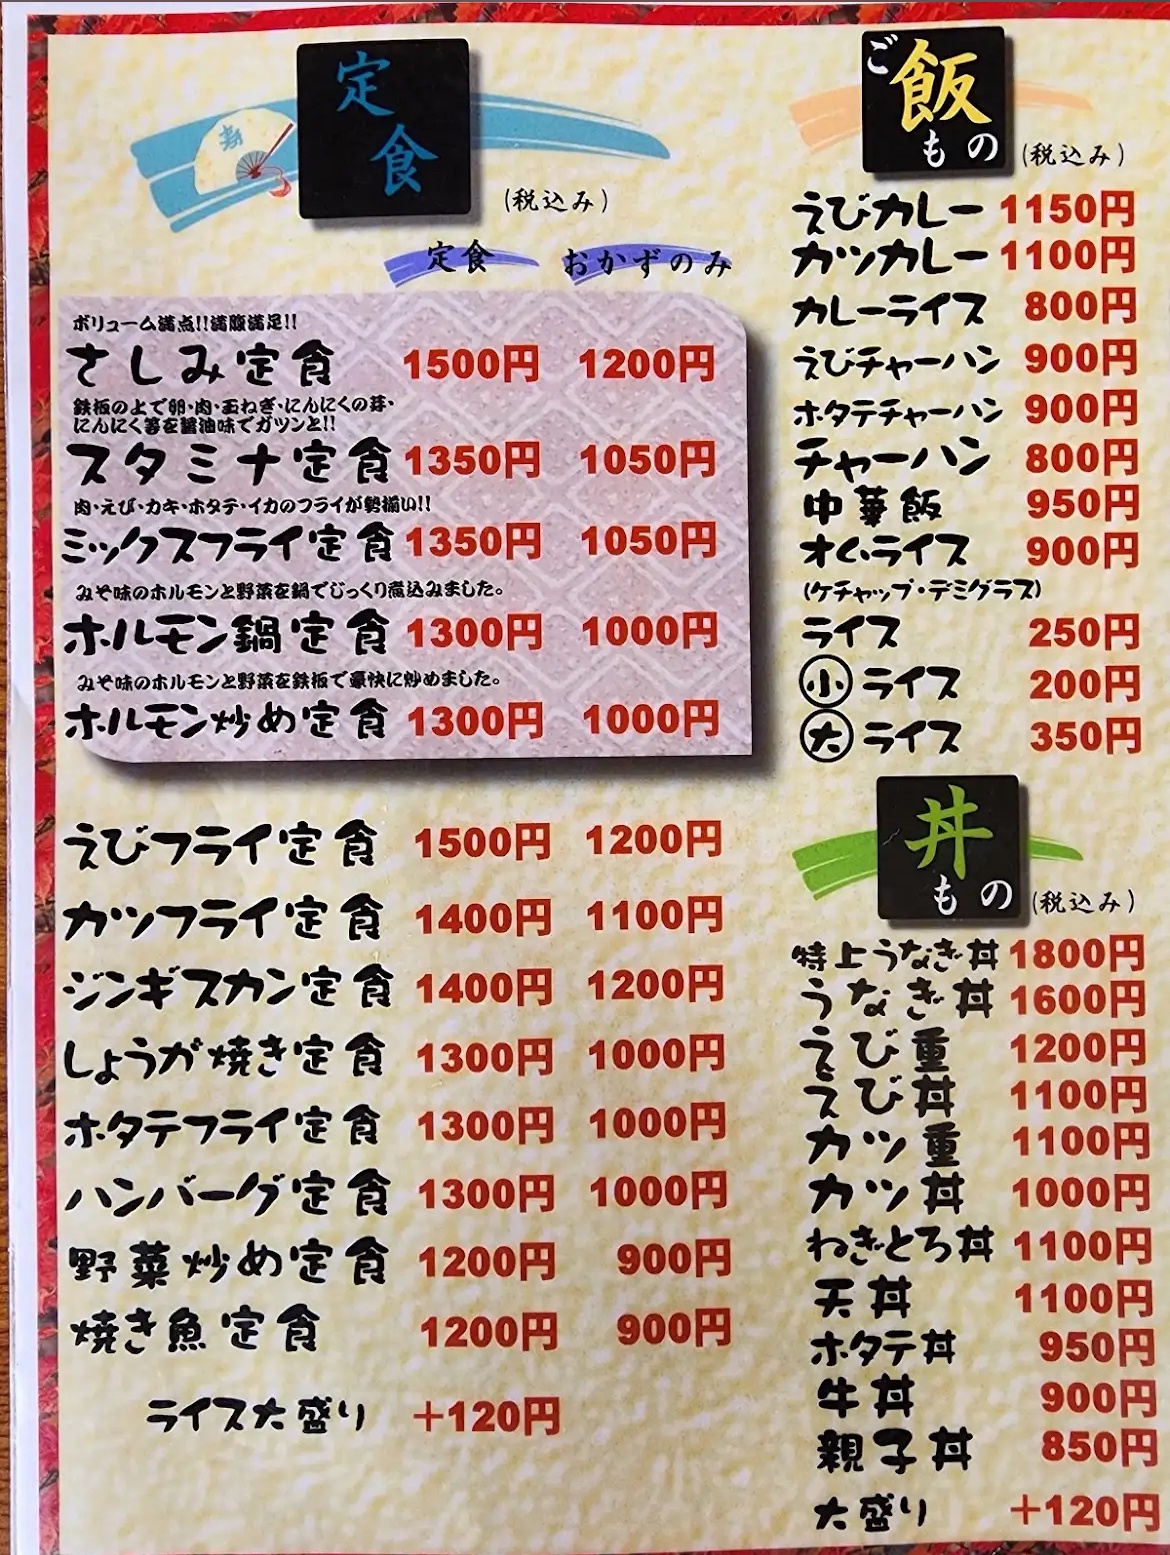 定食
寿
(税込み)
定食 おかずのみ
ボリューム満点!!満腹満足!!
さしみ定食 1500円 1200円
鉄板の上で卵・肉・玉ねぎ・にんにくの芽・
にんにく等を醤油味でガツンと!!
スタミナ定食 1350円 1050円
肉・えび・カキ・ホタテ・イカのフライが勢揃い!!
ミックスフライ定食 1350円 1050円
みそ味のホルモンと野菜を鍋でじっくり煮込みました。
ホルモン鍋定食 1300円 1000円
みそ味のホルモンと野菜を鉄板で豪快に炒めました。
ホルモン炒め定食 1300円 1000円
えびフライ定食 1500円 1200円
カツフライ定食 1400円 1100円
ジンギスカン定食 1400円 1200円
しょうが焼き定食 1300円 1000円
ホタテフライ定食 1300円 1000円
ハンバーグ定食 1300円 1000円
野菜炒め定食 1200円 900円
焼き魚定食 1200円 900円
ライス大盛り +120円
ご飯もの
(税込み)
えびカレー 1150円
カツカレー 1100円
カレーライス 800円
えびチャーハン 900円
ホタテチャーハン 900円
チャーハン 800円
中華飯 950円
オムライス 900円
(ケチャップ・デミグラス)
ライス 250円
小ライス 200円
大ライス 350円
丼もの
(税込み)
特上うなぎ丼 1800円
うなぎ丼 1600円
えび重 1200円
えび丼 1100円
カツ重 1100円
カツ丼 1000円
ねぎとろ丼 1100円
天丼 1100円
ホタテ丼 950円
牛丼 900円
親子丼 850円
大盛り +120円